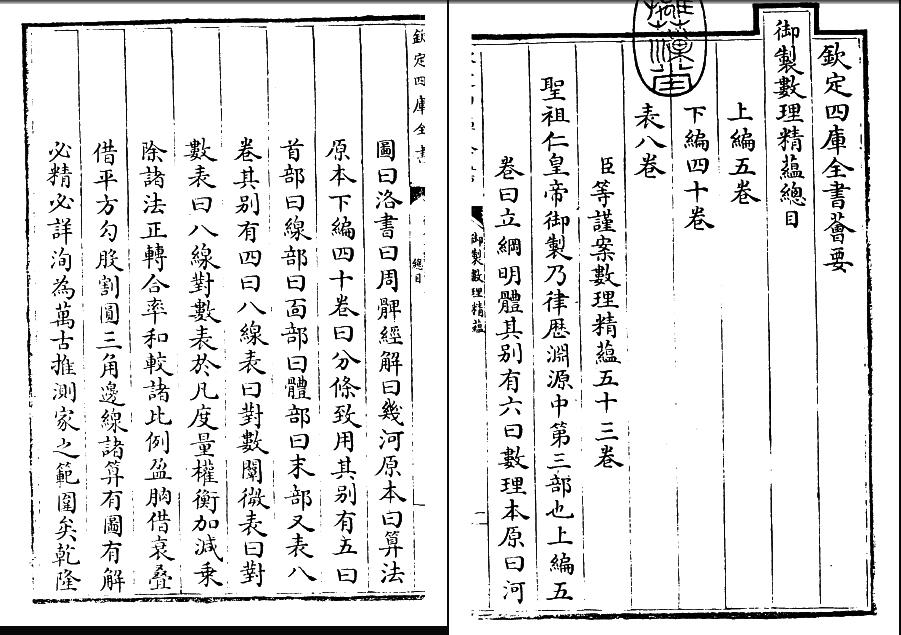 欽定四庫全書薈要
御製數理精蘊總目
上編五卷
下編四十卷
表八卷
臣等謹案數理精蘊五十三卷
聖祖仁皇帝御製乃律歷淵源中第三部也上編五
卷曰立綱明體其别有六曰數理本原曰河
御製數理精蘊
欽定四庫全書
總目
圖曰洛書曰周髀經解曰幾河原本曰算法
原本下編四十卷曰分條致用其别有五曰
首部曰線部曰面部曰體部曰末部又表八
卷其别有四曰八線表曰對數闡微表曰對
數表曰八線對數表於凡度量權衡加減乗
除諸法正轉合率和較諸比例盈朒借衰疊
借平方勾股割圓三角邊線諸算有圖有解
必精必詳洵為萬古推測家之範圍矣乾隆